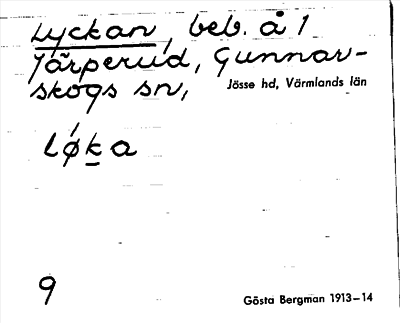 Lyckan, beb. å 1
Järperud, Gunnar-
skogs sn,
Jösse hd, Värmlands län
Løka
9
Gösta Bergman 1913–14